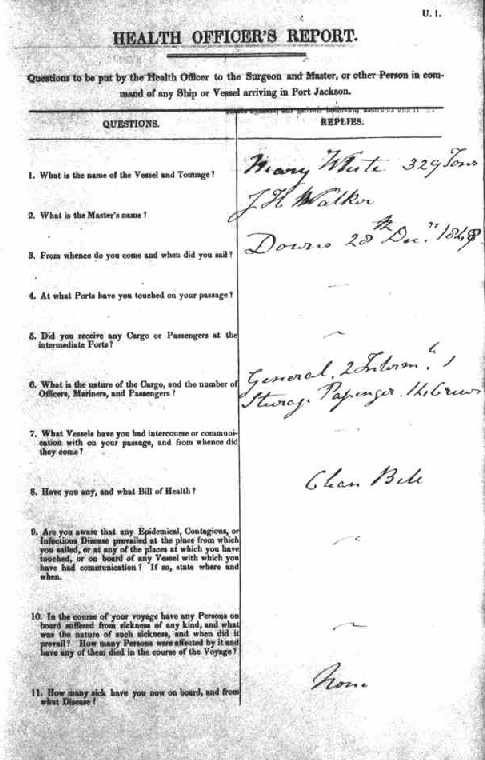 U. 1.
HEALTH OFFICER'S REPORT.
Questions to be put by the Health Officer to the Surgeon and Master, or other Person in com-
mand of any Ship or Vessel arriving in Port Jackson.
QUESTIONS.
REPLIES.
1. What is the name of the Vessel and Tonnage?
Mary White 329 Tons
2. What is the Master's name?
J H Walker
3. From whence do you come and when did you sail?
Downs 28th Decr. 1848
4. At what Ports have you touched on your passage?
—
5. Did you receive any Cargo or Passengers at the
intermediate Ports?
—
6. What is the nature of the Cargo, and the number of
Officers, Mariners, and Passengers?
General, 2 1
Passenger 14 Crew
7. What Vessels have you had intercourse or communi-
cation with on your passage, and from whence did
they come?
—
8. Have you any, and what Bill of Health?
Clean Bill
9. Are you aware that any Epidemical, Contagious, or
Infectious Disease prevailed at the place from which
you sailed, or at any of the places at which you have
touched, or on board of any Vessel with which you
have had communication? If so, state where and
when.
—
10. In the course of your voyage have any Persons on
board suffered from sickness of any kind, and what
was the nature of such sickness, and when did it
prevail? How many Persons were affected by it and
have any of them died in the course of the Voyage?
—
11. How many sick have you now on board, and from
what Disease?
None